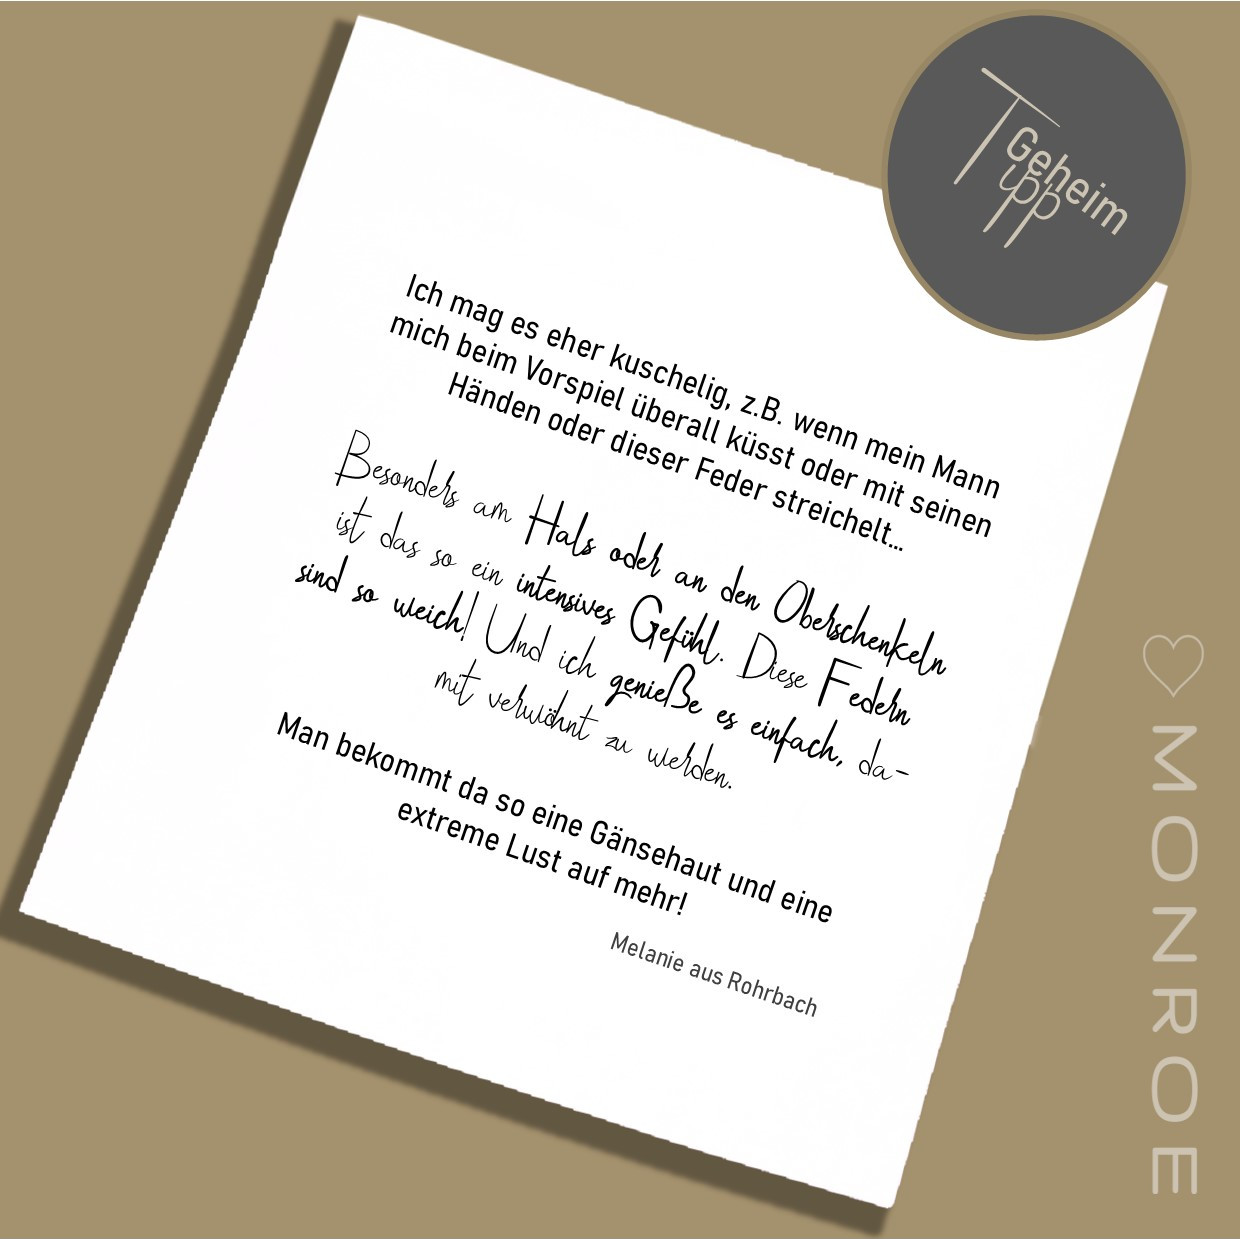 Geheim
Tipp
Ich mag es eher kuschelig, z.B. wenn mein Mann
mich beim Vorspiel überall küsst oder mit seinen
Händen oder dieser Feder streichelt...
Besonders am Hals oder an den Oberschenkeln
ist das so ein intensives Gefühl. Diese Federn
sind so weich! Und ich genieße es einfach, da-
mit verwöhnt zu werden.
Man bekommt da so eine Gänsehaut und eine
extreme Lust auf mehr!
Melanie aus Rohrbach
♡MONROE